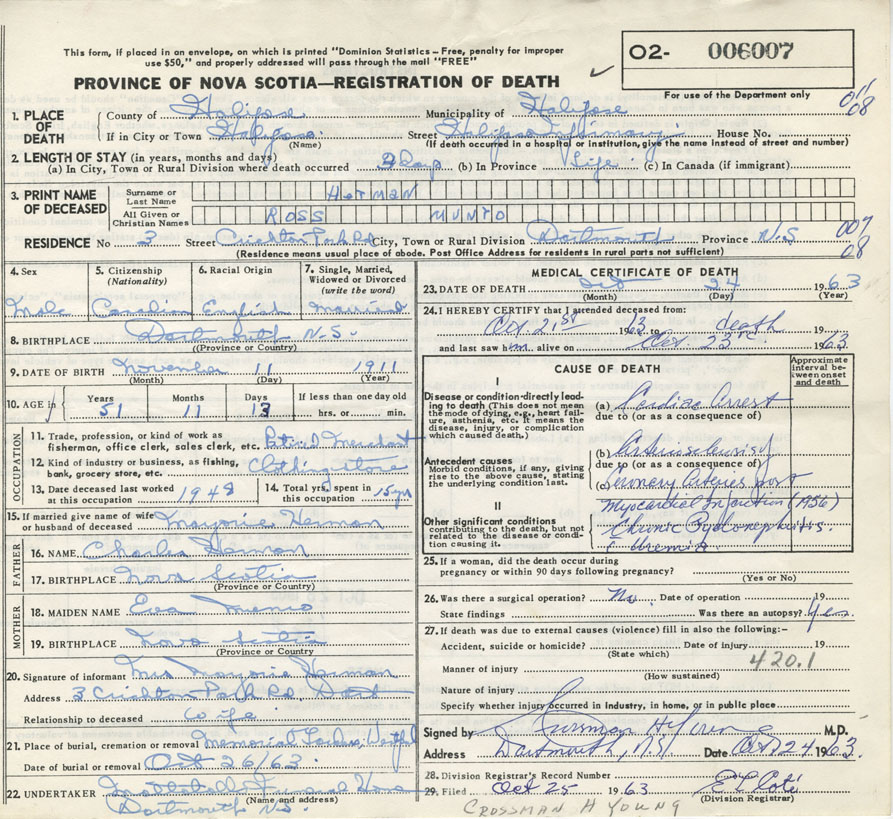 This form, if placed in an envelope, on which is printed "Dominion Statistics – Free, penalty for improper
use $50," and properly addressed will pass through the mail "FREE"
O2- 006007
PROVINCE OF NOVA SCOTIA—REGISTRATION OF DEATH
For use of the Department only
08
1. PLACE OF DEATH County of Halifax Municipality of Halifax
If in City or Town Halifax Street Halifax Infirmary House No.
(Name) (If death occurred in a hospital or institution, give the name instead of street and number)
2. LENGTH OF STAY (in years, months and days)
(a) In City, Town or Rural Division where death occurred 2 Days (b) In Province Life (c) In Canada (if immigrant)
3. PRINT NAME OF DECEASED Surname or Last Name Herman
All Given or Christian Names Ross Munro
007
08
RESIDENCE No 3 Street Crichton Park Rd City, Town or Rural Division Dartmouth Province N.S
(Residence means usual place of abode. Post Office Address for residents in rural parts not sufficient)
4. Sex 5. Citizenship (Nationality) 6. Racial Origin 7. Single, Married, Widowed or Divorced (write the word)
Male Canadian English Married
8. BIRTHPLACE Dartmouth N.S.
(Province or Country)
9. DATE OF BIRTH November 11 1911
(Month) (Day) (Year)
10. AGE in Years Months Days If less than one day old
51 11 13 hrs. or min.
OCCUPATION
11. Trade, profession, or kind of work as
fisherman, office clerk, sales clerk, etc. Retired Merchant
12. Kind of industry or business, as fishing,
bank, grocery store, etc. Clothing store
13. Date deceased last worked at this occupation 1948 14. Total yrs. spent in this occupation 15 yrs
15. If married give name of wife
or husband of deceased Marjorie Herman
FATHER
16. NAME Charles Herman
17. BIRTHPLACE Nova Scotia
(Province or Country)
MOTHER
18. MAIDEN NAME Eva
19. BIRTHPLACE Nova Scotia
(Province or Country)
20. Signature of informant Mrs Marjorie Herman
Address 3 Crichton Park Rd Dart
Relationship to deceased wife
21. Place of burial, cremation or removal Memorial
Date of burial or removal Oct 26/63.
22. UNDERTAKER Funeral Home
(Name and address)
Dartmouth N.S.
MEDICAL CERTIFICATE OF DEATH
23. DATE OF DEATH Oct 24 1963
(Month) (Day) (Year)
24. I HEREBY CERTIFY that I attended deceased from:
Oct. 21st 1963 to death 19
and last saw him alive on Oct. 23rd 1963
CAUSE OF DEATH
Approximate interval between onset and death
I
Disease or condition directly leading to death (This does not mean the mode of dying, e.g., heart failure, asthenia, etc. It means the disease, injury, or complication which caused death.)
(a) Cardiac Arrest
due to (or as a consequence of)
Antecedent causes
Morbid conditions, if any, giving rise to the above cause, stating the underlying condition last.
(b)
due to (or as a consequence of)
(c) Coronary Arteries post
Myocardial Infarction (1956)
II
Other significant conditions
contributing to the death, but not related to the disease or condition causing it.
Chronic Pyelonephritis.
Uremia.
25. If a woman, did the death occur during
pregnancy or within 90 days following pregnancy?
(Yes or No)
26. Was there a surgical operation? No Date of operation 19
State findings Was there an autopsy? Yes
27. If death was due to external causes (violence) fill in also the following:–
Accident, suicide or homicide? Date of injury 19
(State which)
420.1
Manner of injury
(How sustained)
Nature of injury
Specify whether injury occurred in industry, in home, or in public place
Signed by Crossman H Young M.D.
Address Dartmouth, N.S Date Oct 24 1963.
28. Division Registrar's Record Number
29. Filed Oct 25 1963
(Division Registrar)
CROSSMAN H YOUNG